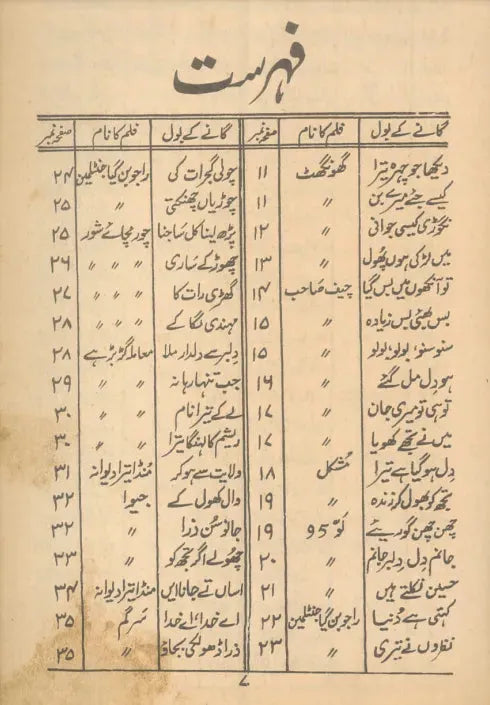 فہرست
گانے کے بول فلم کا نام صفحہ نمبر
دیکھا جو چہرہ تیرا گھونگھٹ ۱۱
کیسے جئے میرے بن ״ ۱۱
نگوڑی کیسی جوانی ״ ۱۲
میں لڑکی ہوں پھول ״ ۱۳
تو آنکھوں میں بس گیا چیف صاحب ۱۴
بس بھئی بس زیادہ ״ ۱۵
سنو سنو، بولو، بولو ״ ۱۵
ہو دل مل گئے ״ ۱۶
تو ہی تو میری جان ״ ۱۷
میں نے تجھے کھویا ״ ۱۷
دل ہو گیا ہے تیرا مشکل ۱۸
تجھ کو بھول کر زندہ ״ ۱۹
چھن چھن گوریئے لَو 95 ۱۹
جانم دل، دلبر جانم ״ ۲۰
حسین نکلتے ہیں ״ ۲۱
کہتی ہے دُنیا راجو بن گیا جنٹلمین ۲۲
نظروں نے تیری ״ ۲۳
گانے کے بول فلم کا نام صفحہ نمبر
چولی گجرات کی راجو بن گیا جنٹلمین ۲۴
چوڑیاں چھنکتی ״ ۲۵
پڑھ لینا کل ساجنا چور مچائے شور ۲۵
چھوڑ کے ساری ״ ״ ״ ۲۶
گھڑی رات کا ״ ״ ״ ۲۷
مہندی لگا کے ״ ״ ״ ۲۸
دلبر سے دلدار ملا معاملہ گڑبڑ ہے ۲۸
جب تنہا رہا نہ ״ ״ ۲۹
لے کے تیرا نام ״ ״ ۳۰
ریشم کا لہنگا تیرا ״ ״ ۳۰
ولایت سے ہو کر منڈا تیرا دیوانہ ۳۱
وال کھول کے جیوا ۳۲
جانو سُن ذرا ״ ۳۲
چھولے اگر تجھ کو ״ ۳۳
اساں تے جاناں ایں منڈا تیرا دیوانہ ۳۴
اے خدا، اے خدا سرگم ۳۵
ذرا ڈھولکی بجاؤ ״ ۳۵
۷